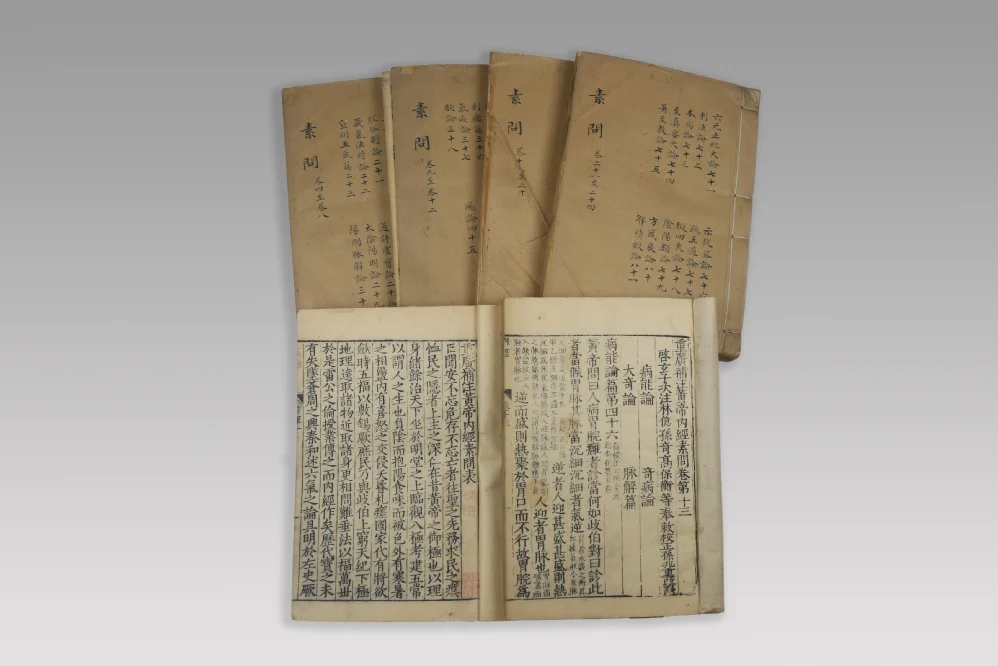 素問
卷四至卷八
論二十一
藏氣法時論二十二
宣明五氣篇二十三
通評虛實論二十八
太陰陽明論二十九
陽明脉解論三十
素問
卷九至卷十二
刺瘧篇三十六
氣厥論三十七
欬論三十八
厥論四十五
素問
卷十三至二十
素問
卷二十一至二十四
六元正紀大論七十一
刺法論七十二
本病論七十三
至真要大論七十四
著至教論七十五
示從容論七十六
疏五過論七十七
徵四失論七十八
陰陽類論七十九
方盛衰論八十
解精微論八十一
重廣補注黃帝內經素問卷第十三
啓玄子次注林億孫奇高保衡等奉敕校正孫兆重改誤
病能論
奇病論
大奇論
脉解篇
病能論篇第四十六
黃帝問曰人病胃脘癰者診當何如歧伯對曰診此
者當候胃脉其脉當沉細沉細者氣逆
逆者人迎甚盛甚盛則熱
人迎者胃脉也
逆而盛則熱聚於胃口而不行故胃脘爲
重廣補注黃帝內經素問表
臣聞安不忘危存不忘亡者往聖之先務求民之瘼
恤民之隱者上主之深仁在昔黃帝之御極也以理
身緒餘治天下坐於明堂之上臨觀八極考建五常
以謂人之生也負陰而抱陽食味而被色外有寒暑
之相盪內有喜怒之交侵夭昏札瘥國家代有將欲
斂時五福以敷錫厥庶民乃與歧伯上窮天紀下極
地理遠取諸物近取諸身更相問難垂法以福萬世
於是雷公之倫授業傳之而內經作矣歷代寶之未
有失墜蒼周之興秦和述六氣之論具明於左史厥